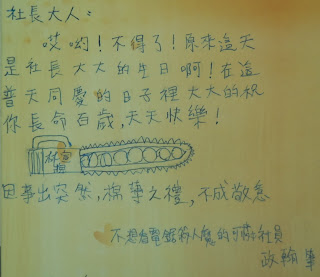 社長大人：
哎喲！不得了！原來這天
是社長大大的生日啊！在這
普天同慶的日子裡大大的祝
你長命百歲，天天快樂！
因事出突然，棉薄之禮，不成敬意
不想看電鋸殺人魔的可憐社員
政翰 筆